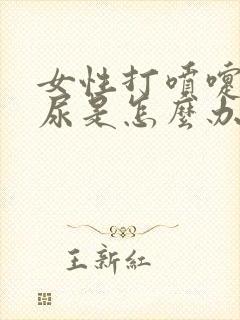 女性打噴嚏
尿是怎麼办
王新紅